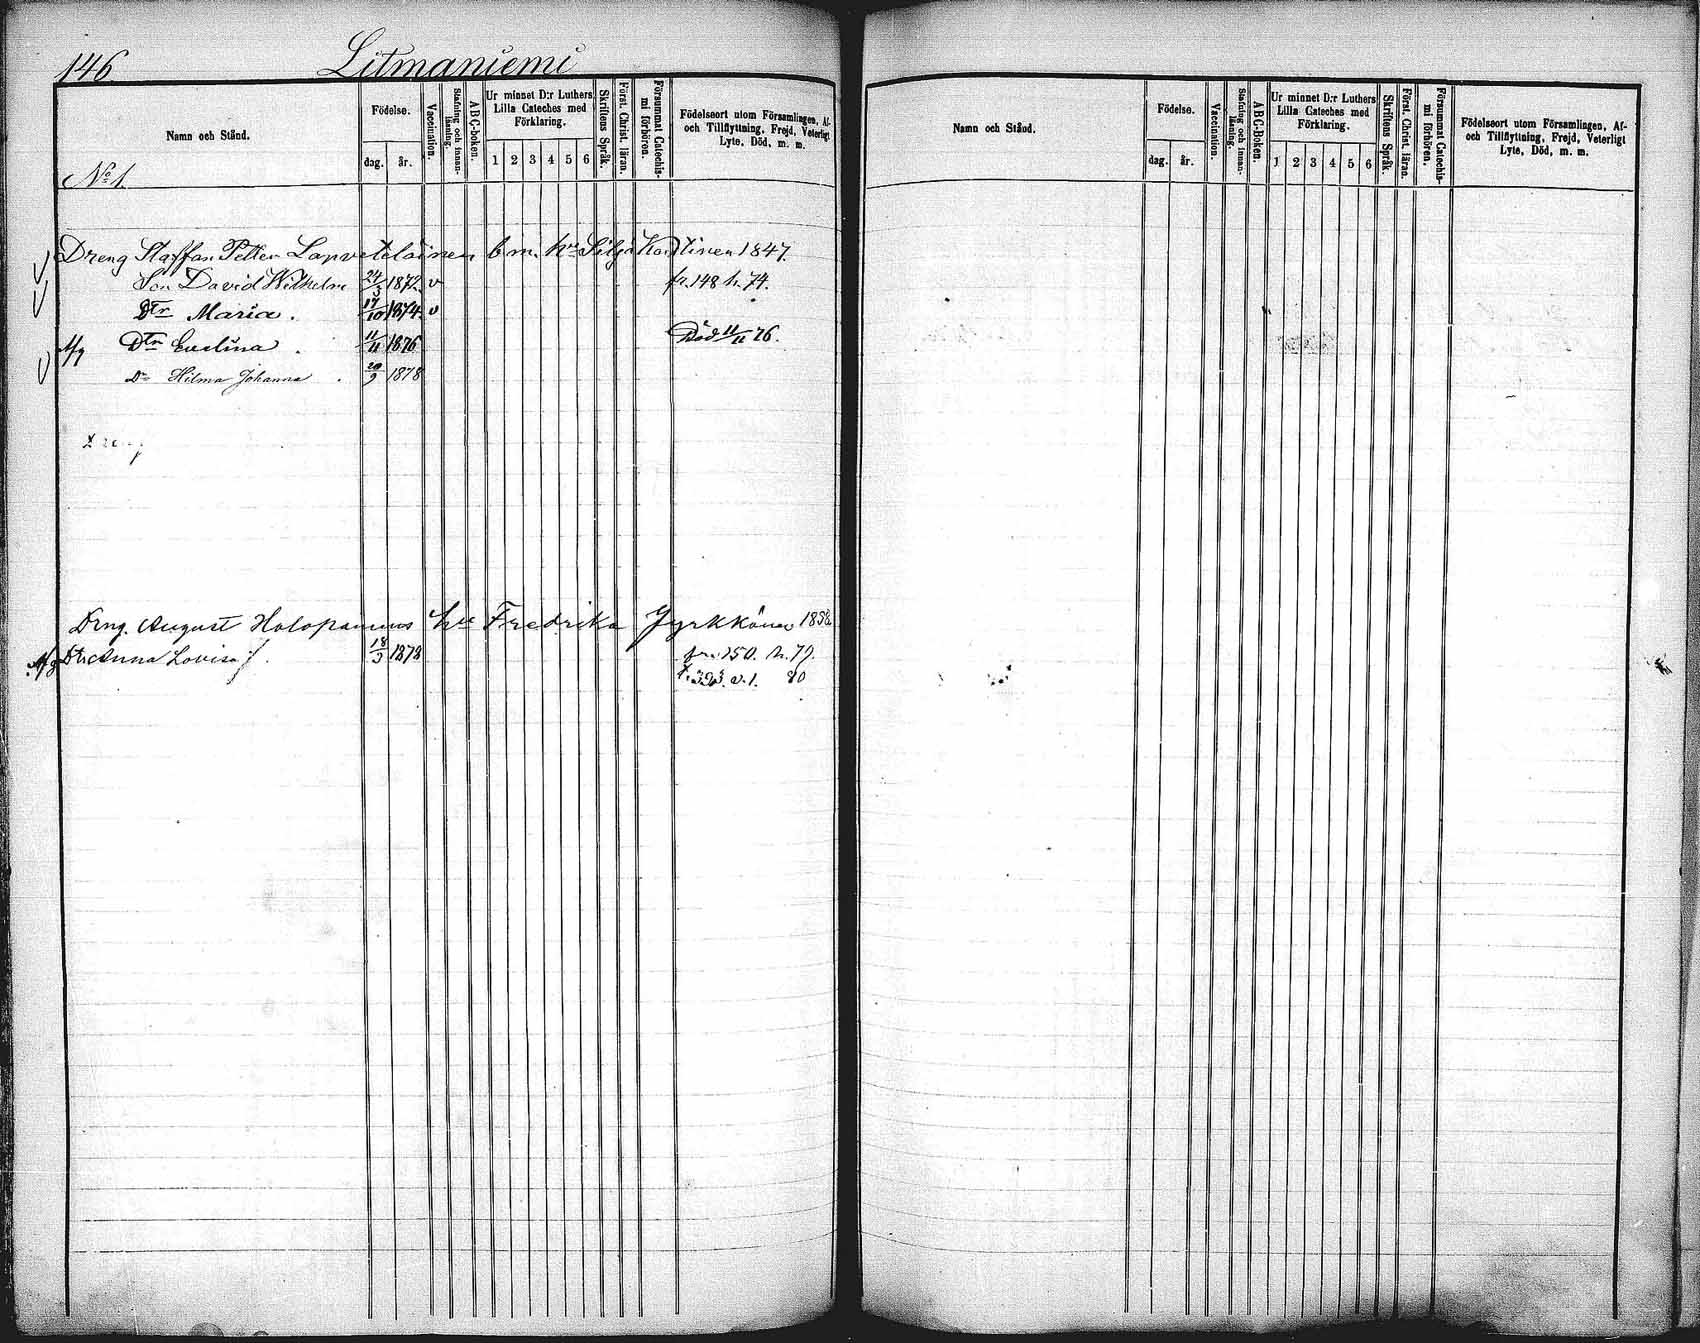 146 Litmaniemi
Namn och Stånd.
Födelse.
dag. år.
Vaccination.
Stafning och innan-läsning.
ABC-boken.
Ur minnet D:r Luthers
Lilla Cateches med
Förklaring.
1 2 3 4 5 6
Skriftens Språk.
Först. Christ. läran.
Försummat Catechis-mi förhören.
Födelseort utom Församlingen, Af-
och Tillflyttning, Frejd, Veterligt
Lyte, Död, m. m.
No 1.
Dreng Staffan Petter Lapveteläinen b. m. hu Silja 1847.
Son David Wilhelm 24/3 1872. v fr. 148 h. 74.
Dtr Maria. 17/10 1874. v
Afg Dtr Evelina. 11/11 1876 Död 11/11 76.
Dr Hilma Johanna. 20/9 1878
Dreng
Drng. August Holopainus hu Fredrika Jyrkkönen 1858
Afg Dtr Anna Lovisa f. 18/3 1878 fr. 150. h. 79.
80
Namn och Stånd.
Födelse.
dag. år.
Vaccination.
Stafning och innan-läsning.
ABC-boken.
Ur minnet D:r Luthers
Lilla Cateches med
Förklaring.
1 2 3 4 5 6
Skriftens Språk.
Först. Christ. läran.
Försummat Catechis-mi förhören.
Födelseort utom Församlingen, Af-
och Tillflyttning, Frejd, Veterligt
Lyte, Död, m. m.